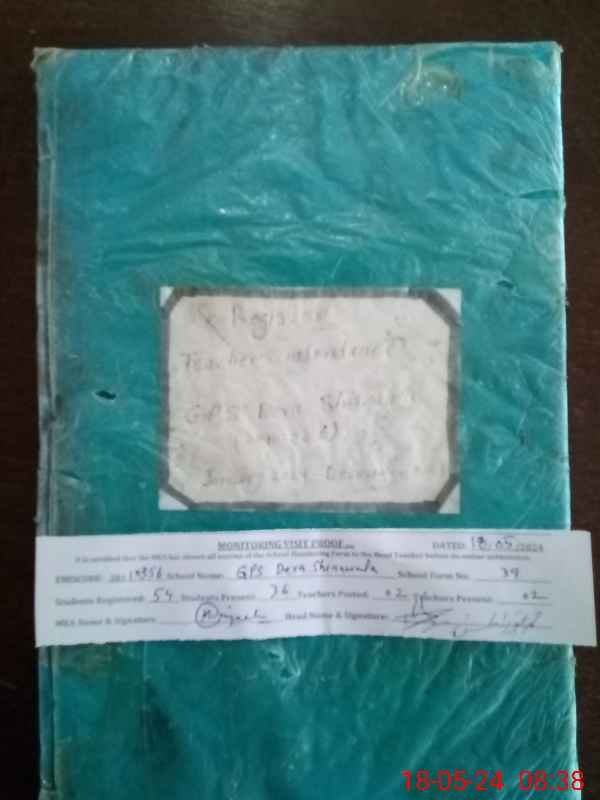 Register
Teachers attendance
GPS Dera
January 2024 - December
MONITORING VISIT PROOF
DATED: 18/05/2024
It is certified that the MEA has shown all entries of the School Monitoring Form to the Head Teacher before its online submission.
EMISCODE: School Name: GPS Dera Shinawala School Form No: 39
Students Registered: 54 Students Present: 36 Teachers Posted: 02 Teachers Present: 02
MEA Name & Signature: Head Name & Signature:
18-05-24 08:38